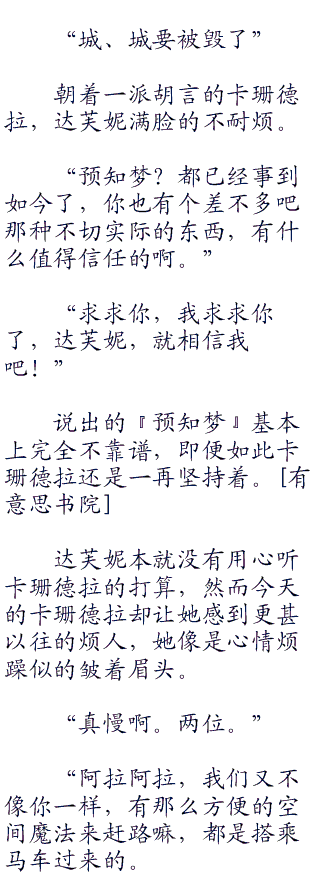 “城、城要被毁了”
朝着一派胡言的卡珊德
拉，达芙妮满脸的不耐烦。
“预知梦？都已经事到
如今了，你也有个差不多吧
那种不切实际的东西，有什
么值得信任的啊。”
“求求你，我求求你
了，达芙妮，就相信我
吧！”
说出的『预知梦』基本
上完全不靠谱，即便如此卡
珊德拉还是一再坚持着。[有
意思书院]
达芙妮本就没有用心听
卡珊德拉的打算，然而今天
的卡珊德拉却让她感到更甚
以往的烦人，她像是心情烦
躁似的皱着眉头。
“真慢啊。两位。”
“阿拉阿拉，我们又不
像你一样，有那么方便的空
间魔法来赶路嘛，都是搭乘
马车过来的。